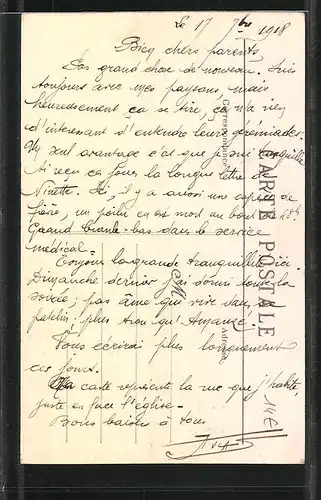 le 17 7bre 1918
Bien chers parents,
Pas grand chose de nouveau. Suis
toujours avec mes paysans, mais
heureusement ça se tire, ça n'a rien
d'intéressant d'entendre leurs jérémiades.
Un seul avantage c'est que je suis tranquille
Ai reçu ces jours la longue lettre de
Ninette. Ici, il y a aussi une espèce de
fièvre, un poilu en est mort au bout de 48h.
Grand branle-bas dans le service
médical.
Toujours grande tranquillité ici.
Dimanche dernier j'ai dormi toute la
soirée; pas âme qui vive dans le
patelin! plus trou qu'
Vous écrirai plus longuement
ces jours.
Ma carte représente la rue que j'habite,
juste en face l'église -
Bons baisers à tous
CARTE POSTALE
Correspondance
Adresse